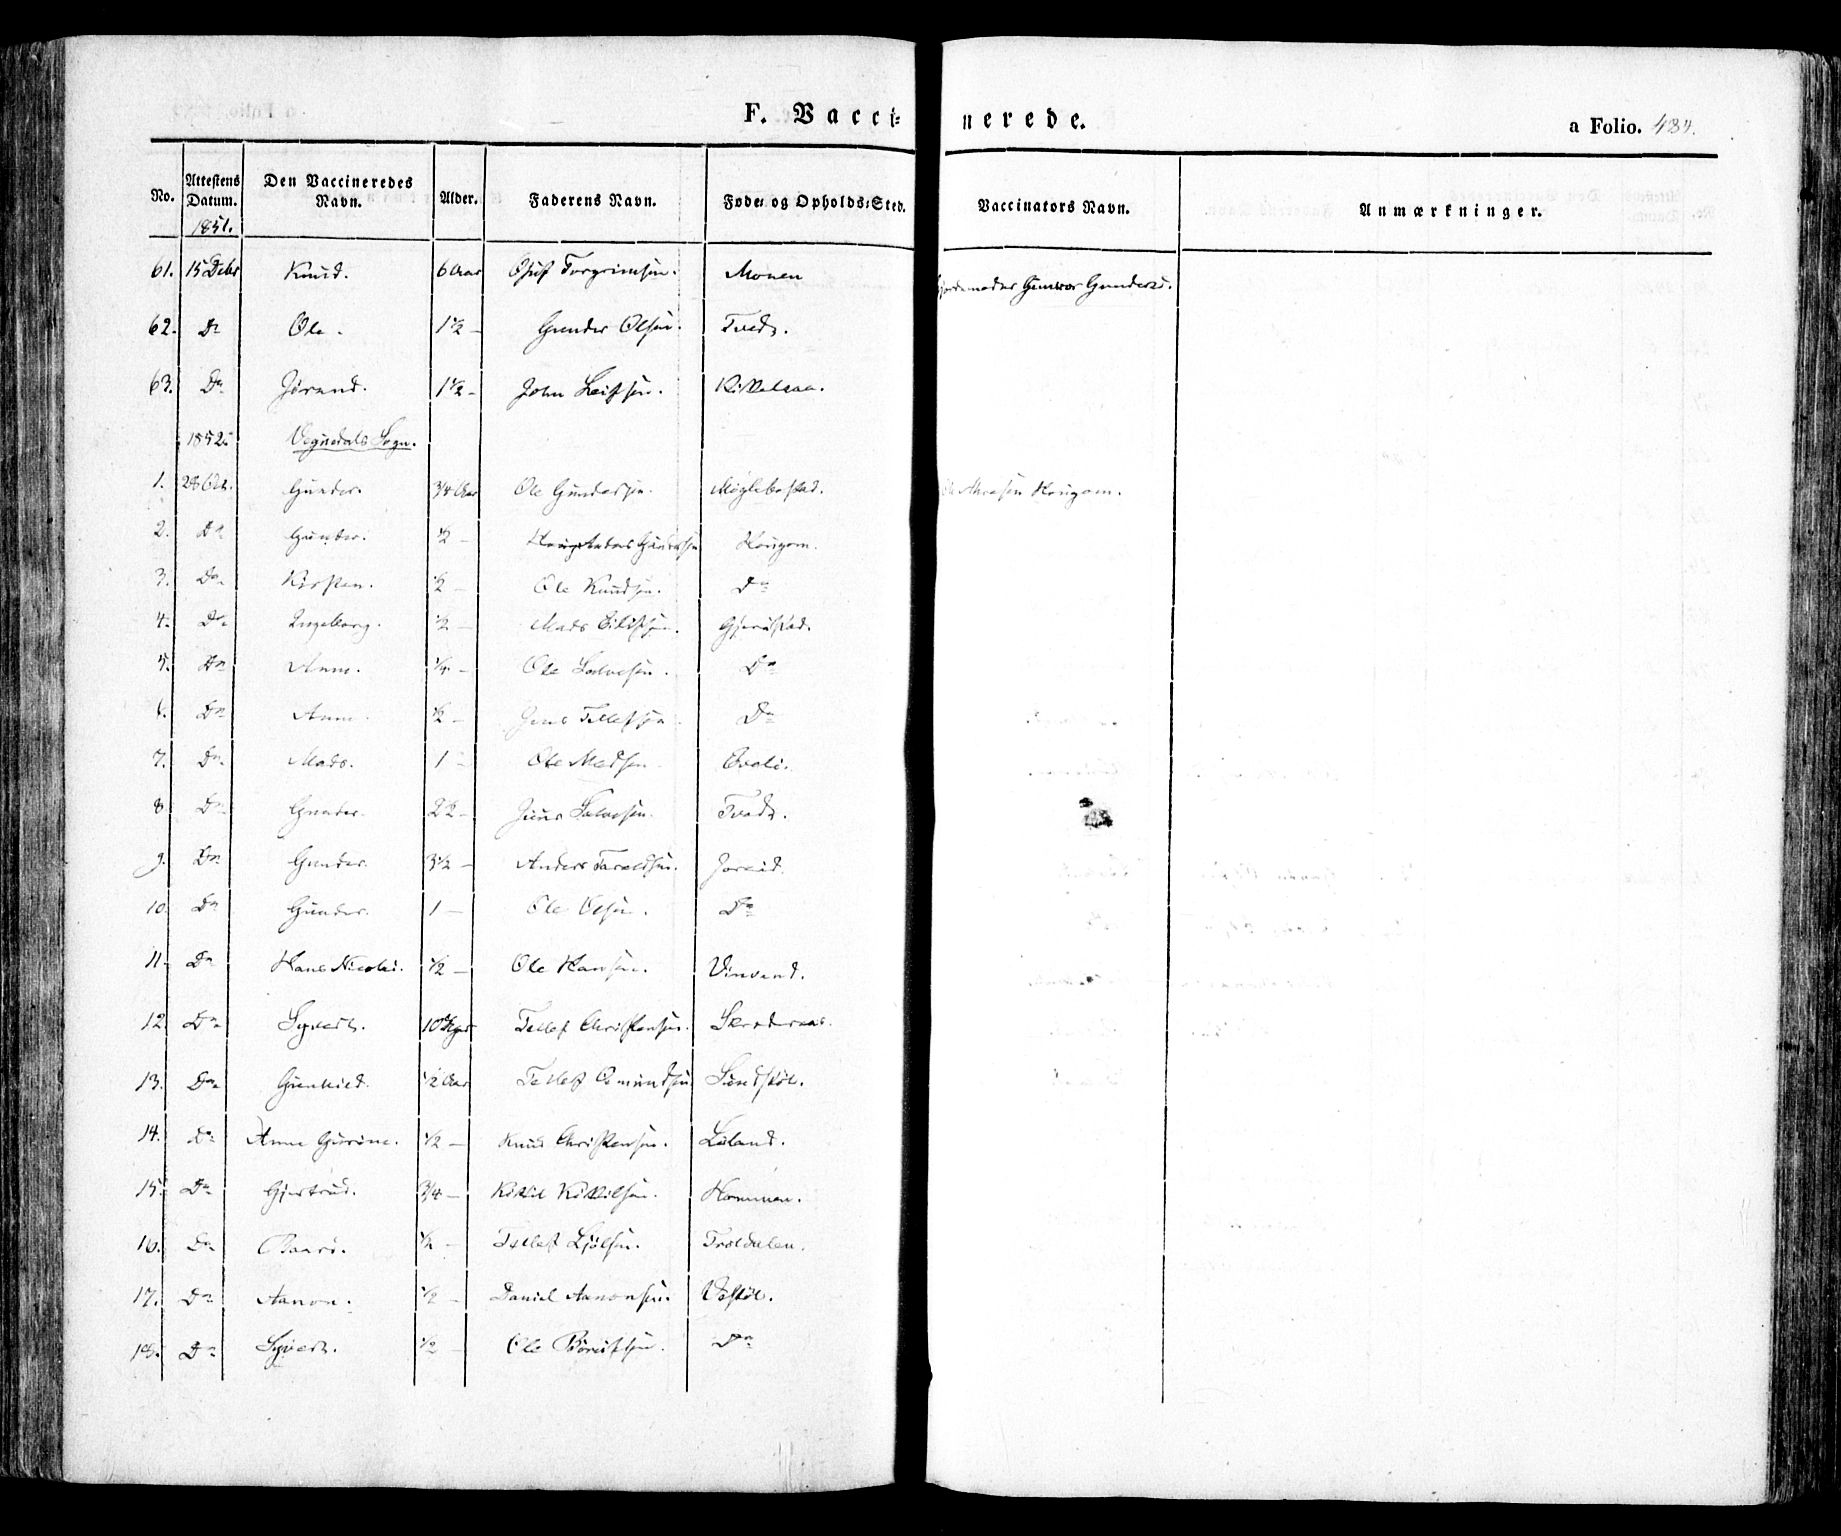 F. Vaccinerede.
a Folio. 484.
No. Attestens Datum. Den Vaccineredes Navn. Alder. Faderens Navn. Føde- og Opholds-Sted. Vaccinators Navn. Anmærkninger.
1851.
61. 15 Debr Knud. 6 Aar Torgrimsen. Monen Gunvor Gunders.
62. Do Ole. 1½ - Gunder Olsen. Tveds.
63. Do Jorand. 1½ - John Leifsen.
1852. Vegusdals Sogn.
1. 28 Gunder. 3/4 Aar Ole Gundersen. Møglebostad. Hougom.
2. Do Gunder. ½ - Anders Gundersen Hougom.
3. Do Kirsten. ½ - Ole Knudsen. Do
4. Do Ingeborg. ½ - Mads Eilifsen. Gjerustad.
5. Do Anne. ¼ - Ole Salvesen. Do
6. Do Anne. ½ - Jens Tellefsen Do
7. Do Mads. 1 - Ole Madsen
8. Do Gunder. 2½ - Jens Salvesen. Tveds.
9. Do Gunder. 3½ - Anders Taraldsen.
10. Do Gunder. 1 - Ole Olsen. Do
11. Do Hans Nicolai. ½ - Ole Hansen. Vinvand.
12. Do Syvert. 10 Tellef Christensen.
13. Do Gunhild. ½ Aar Tellef Omundsen
14. Do Anne Gurine. ½ - Knud Christensen. Luland.
15. Do Gjertrud. 3/4 - Kittil Kittilsen. Hommen.
16. Do ½ - Tellef Ljølsen. Troldalen.
17. Do Aanon. ½ - Daniel Aanonsen. Vestøl.
18. Do Syvert. ½ - Ole Do